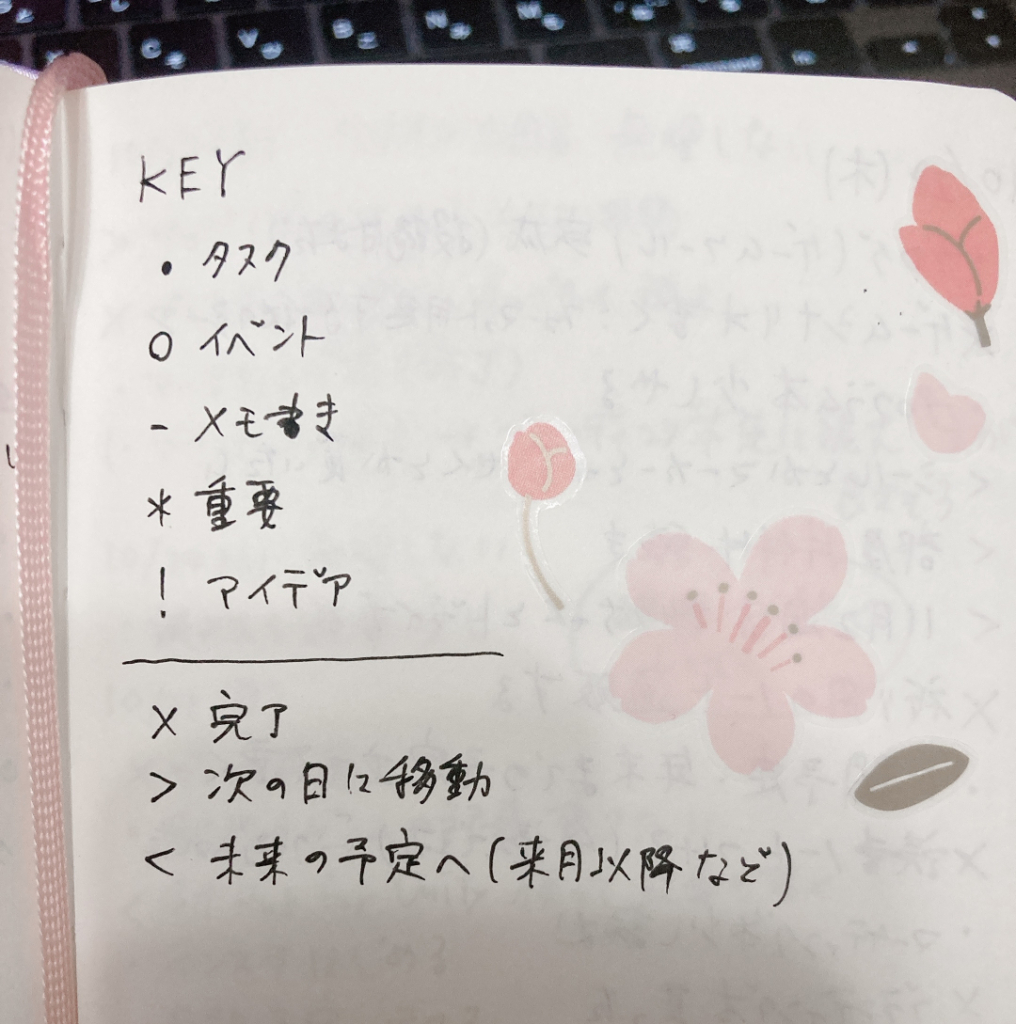 KEY
• タスク
○ イベント
- メモ書き
* 重要
! アイデア
× 完了
> 次の日に移動
< 未来の予定へ(来月以降など)